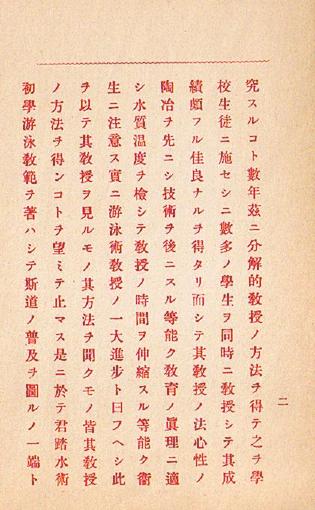 二
究スルコト數年茲ニ分解的敎授ノ方法ヲ得テ之ヲ學
校生徒ニ施セシニ數多ノ學生ヲ同時ニ敎授シテ其成
績頗フル佳良ナルヲ得タリ而シテ其敎授ノ法心性ノ
陶冶ヲ先ニシ技術ヲ後ニスル等能ク敎育ノ眞理ニ適
シ水質温度ヲ檢シテ敎授ノ時間ヲ伸縮スル等能ク衞
生ニ注意ス實ニ游泳術敎授ノ一大進步ト曰フヘシ此
ヲ以テ其敎授ヲ見ルモノ其方法ヲ聞クモノ皆其敎授
ノ方法ヲ得ンコトヲ望ミテ止マス是ニ於テ君踏水術
初學游泳敎範ヲ著ハシテ斯道ノ普及ヲ圖ルノ一端ト